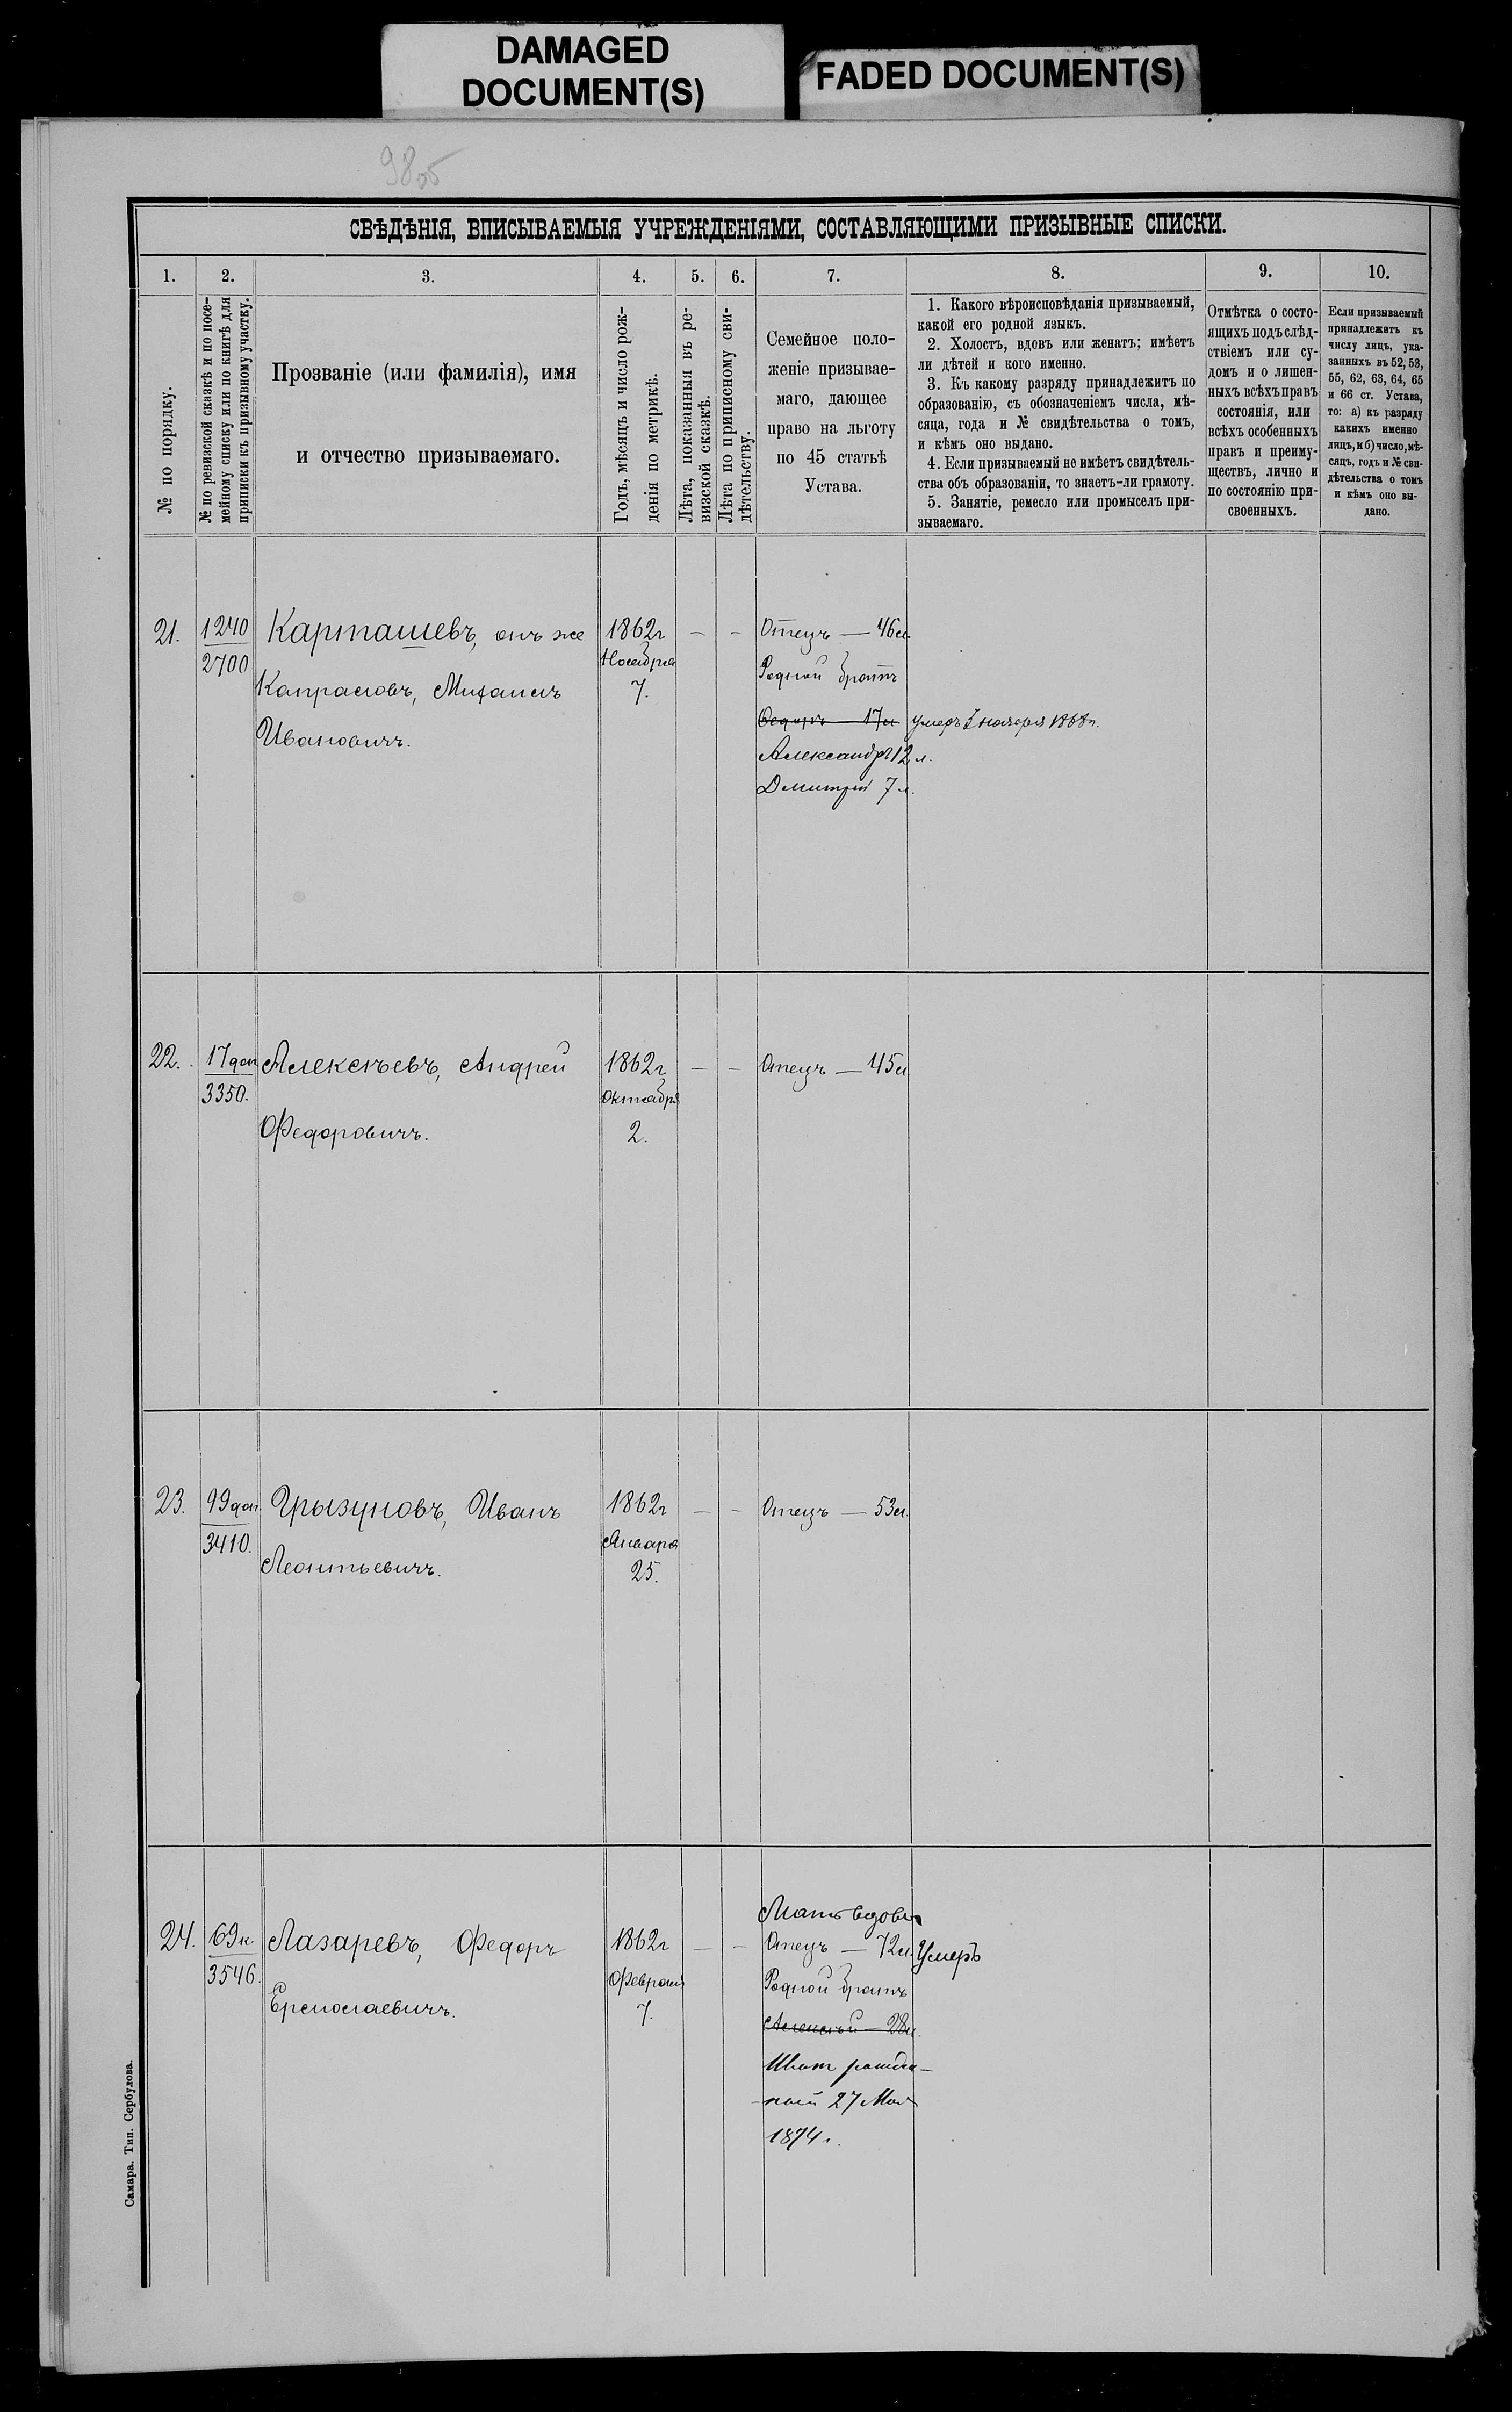 DAMAGED
DOCUMENT(S)
FADED DOCUMENT(S)
СВѢДѢНІЯ, ВПИСЫВАЕМЫЯ УЧРЕЖДЕНІЯМИ, СОСТАВЛЯЮЩИМИ ПРИЗЫВНЫЕ СПИСКИ.
1.
2.
3.
4.
5.
6.
7.
8.
9.
10.
№ по порядку.
№ по ревизской сказкѣ и по посе-
мейному списку или по книгѣ для
приписки къ призывному участку.
Прозваніе (или фамилія), имя
и отчество призываемаго.
Годъ, мѣсяцъ и число рож-
денія по метрикѣ.
Лѣта, показанныя въ ре-
визской сказкѣ.
Лѣта по приписному сви-
дѣтельству.
Семейное поло-
женіе призывае-
маго, дающее
право на льготу
по 45 статьѣ
Устава.
1. Какого вѣроисповѣданія призываемый,
какой его родной языкъ.
2. Холостъ, вдовъ или женатъ; имѣетъ
ли дѣтей и кого именно.
3. Къ какому разряду принадлежитъ по
образованію, съ обозначеніемъ числа, мѣ-
сяца, года и № свидѣтельства о томъ,
и кѣмъ оно выдано.
4. Если призываемый не имѣетъ свидѣтель-
ства объ образованіи, то знаетъ-ли грамоту.
5. Занятіе, ремесло или промыселъ при-
зываемаго.
Отмѣтка о состо-
ящихъ подъ слѣд-
ствіемъ или су-
домъ и о лишен-
ныхъ всѣхъ правъ
состоянія, или
всѣхъ особенныхъ
правъ и преиму-
ществъ, лично и
по состоянію при-
своенныхъ.
Если призываемый
принадлежитъ къ
числу лицъ, ука-
занныхъ въ 52, 53,
55, 62, 63, 64, 65
и 66 ст. Устава,
то: а) къ разряду
какихъ именно
лицъ, и б) число, мѣ-
сяцъ, годъ и № сви-
дѣтельства о томъ
и кѣмъ оно вы-
дано.
21.
1240
2700
Карташевъ, онъ же
Капраловъ, Михаилъ
Ивановичъ.
1862г
Ноября
7.
—
—
Отецъ — 46л.
Родной братъ
Федоръ 17л умеръ ноября 1868г.
Александръ 12 л.
Дмитрій 7 л.
22.
17 доп
3350.
Алексѣевъ, Андрей
Федоровичъ.
1862г
Октября
2.
—
—
Отецъ — 45л
23.
99 доп.
3410.
Грызуновъ, Иванъ
Леонтьевичъ.
1862г
Января
25.
—
—
Отецъ — 53л.
24.
69к
3546.
Лазаревъ, Федоръ
Ермолаевичъ.
1862г
Февраля
7.
—
—
Мать вдова
Отецъ — 72л. Умеръ
Родной братъ
Алексѣй — 28л.
27 Мая
1874 г.
Самара. Тип. Сербулова.